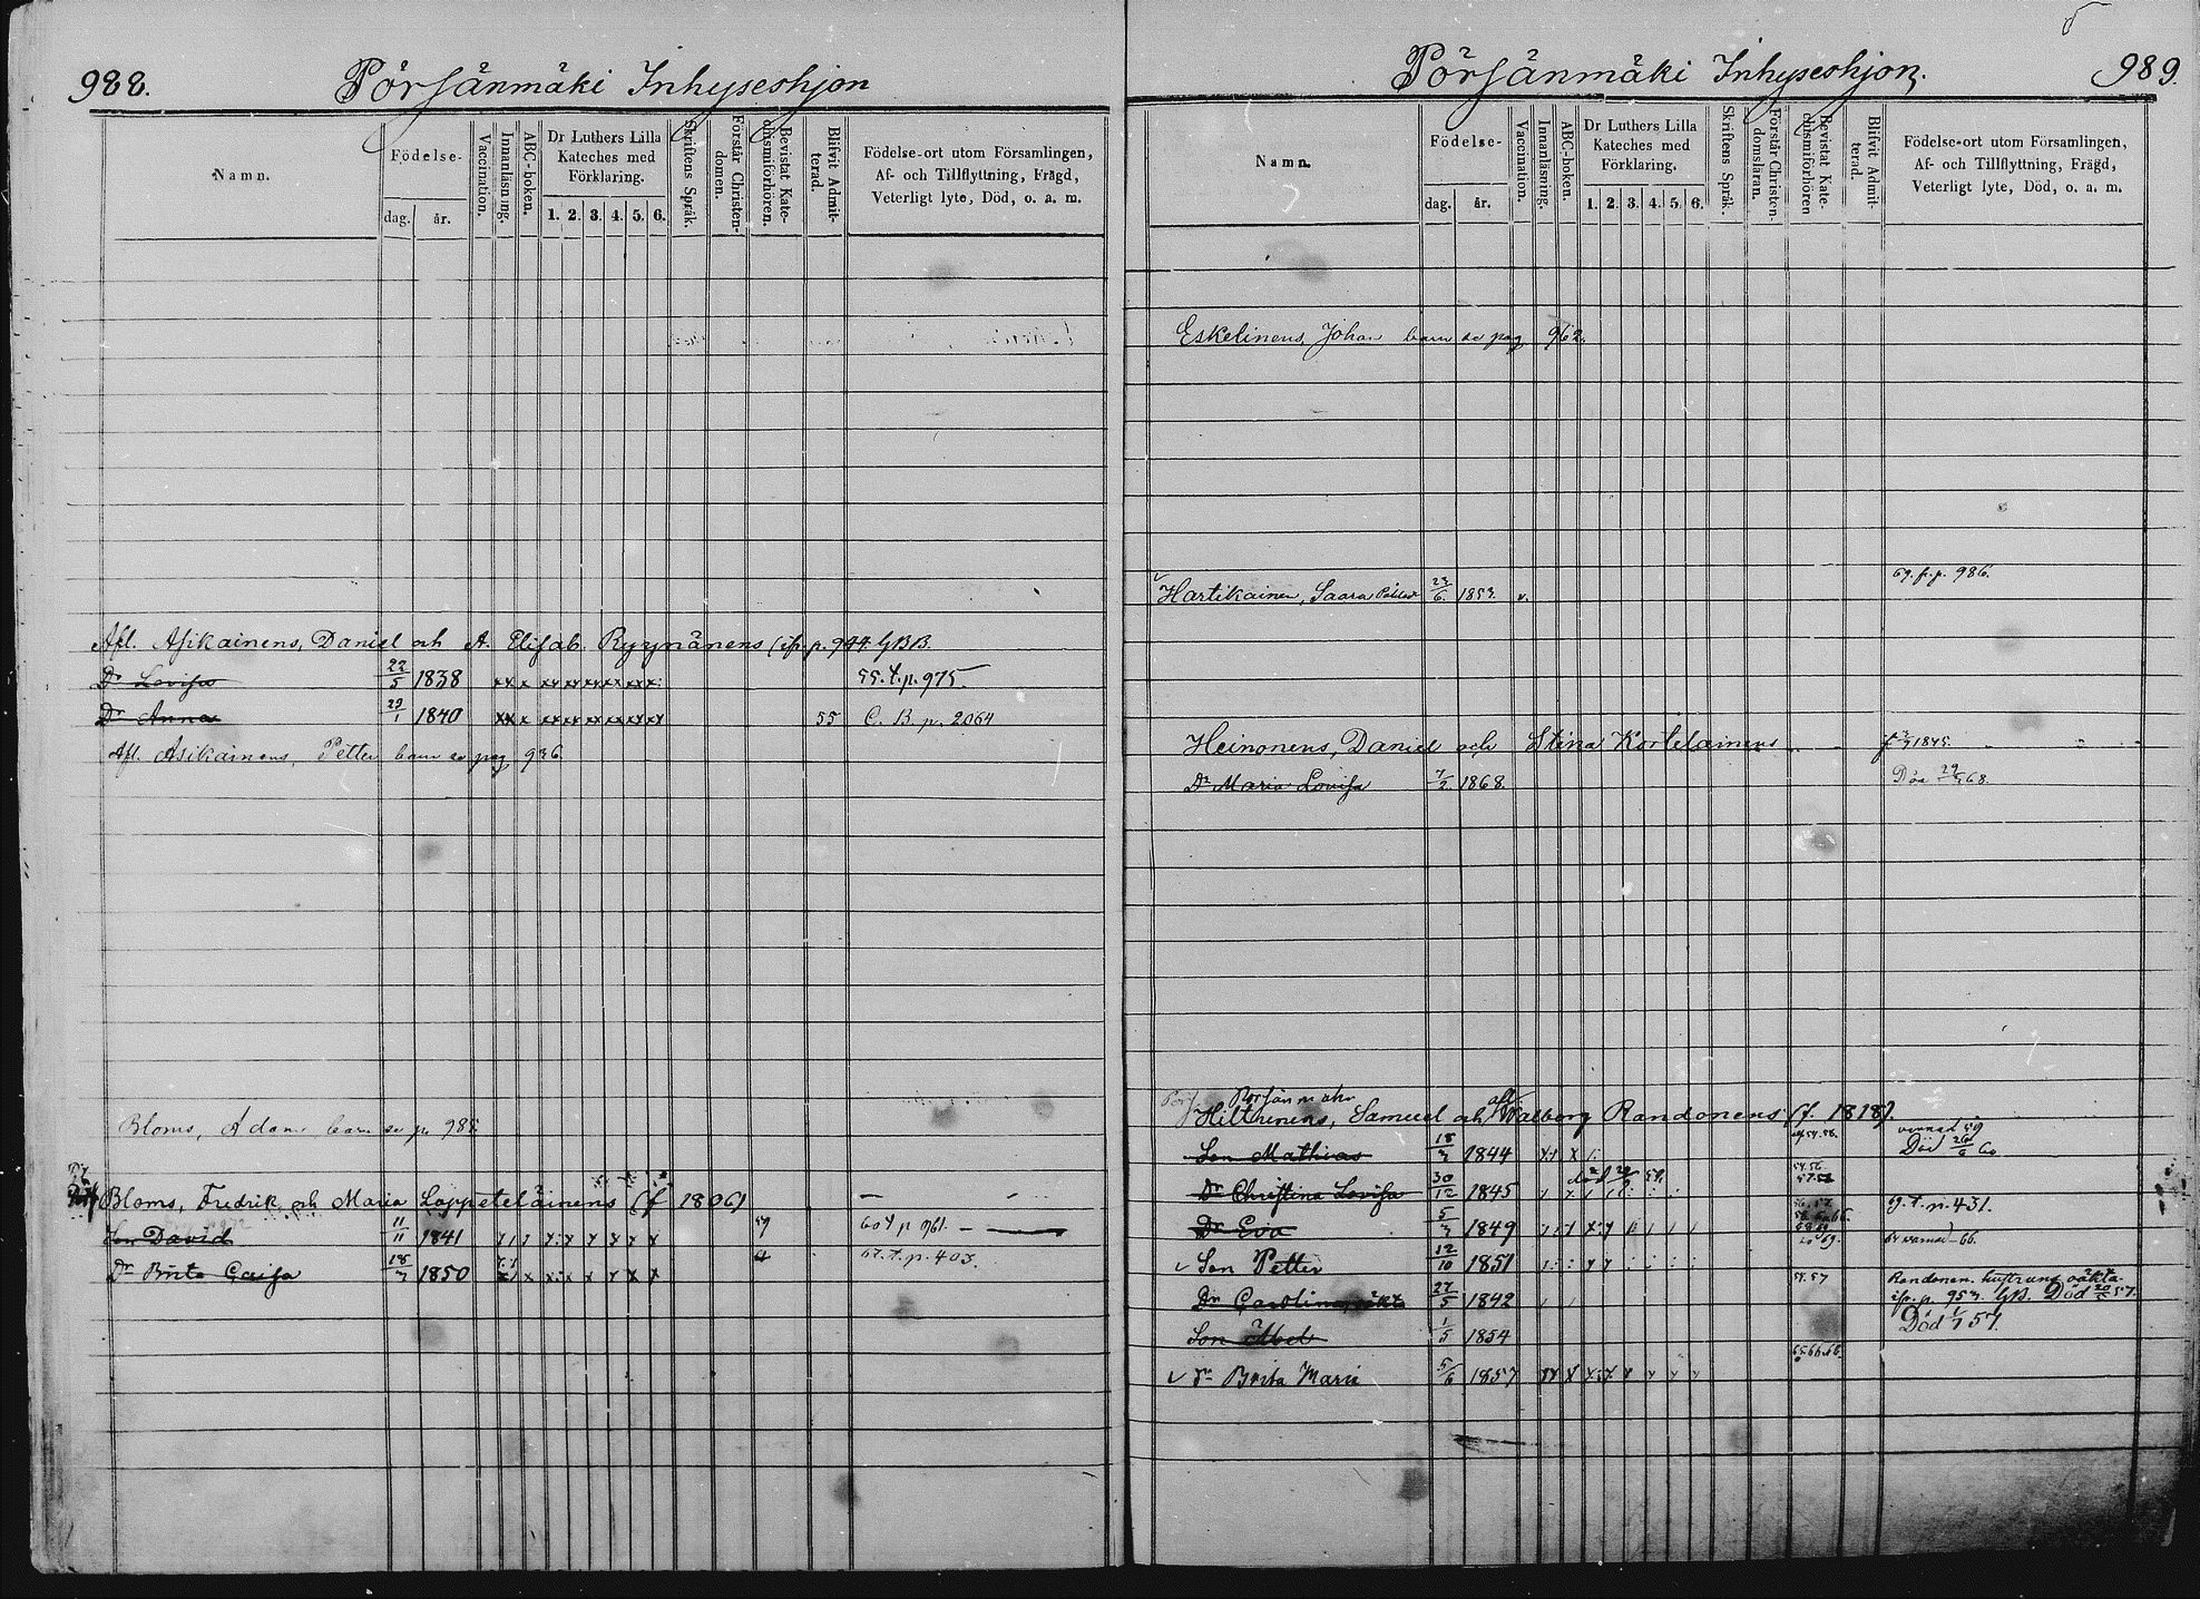 988.
Pörsänmäki Inhyseshjon
Namn.
Födelse-
dag.
år.
Vaccination.
Innanläsning.
ABC-boken.
Dr Luthers Lilla
Kateches med
Förklaring.
1. 2. 3. 4. 5. 6.
Skriftens Språk.
Förstår Christen-
domen.
Bevistat Kate-
chismiförhören.
Blifvit Admit-
terad.
Födelse-ort utom Församlingen,
Af- och Tillflyttning, Frägd,
Veterligt lyte, Död, o. a. m.
Afl. Asikainens, Daniel och A. Elisab. Ryynänens p. 944 GBB.
Dr Lovisa 22/5 1838 xx x xx xx xx xx xx x: 55. t. p. 975.
Dr Anna 29/1 1840 xx x xx xx xx xx xx xx 55 C. B. p. 2064
Afl. Asikainens, Petter barn se pag 936
Bloms, Adam barn se p. 985
Bloms, Fredrik och Maria Loppeteläinens (f 1806)
Son David 11/11 1841 59 60 t p 961.
Dr Brita Caisa 18/7 1850 67. t. p. 403.
Pörsänmäki Inhyseshjon.
989.
Namn.
Födelse-
dag.
år.
Vaccination.
Innanläsning.
ABC-boken.
Dr Luthers Lilla
Kateches med
Förklaring.
1. 2. 3. 4. 5. 6.
Skriftens Språk.
Förstår Christen-
domsläran.
Bevistat Kate-
chismiförhören
Blifvit Admit-
terad.
Födelse-ort utom Församlingen,
Af- och Tillflyttning, Frägd,
Veterligt lyte, Död, o. a. m.
Eskelinens, Johan barn se pag 962.
69. fr. p. 986.
Hartikainen, Saara 23/6. 1853. v.
Heinonens, Daniel och Stina Kortelainens 1845.
Dr Maria Lovisa 7/2. 1868. Död 68.
Hiltunens, Samuel och Walborg Randonens (f. 1818).
Son Mathias 18/7 1844 Död 26/6 60
Dr Christina Lovisa 30/12 1845
Dr Eva 5/7 1849 59. t. p. 431.
Son Petter 12/10 1851
Dr Carolina 27/5 1842 54.57 Randonen. hustruns oäkta.
p. 953. GB. Död 20/5 57.
Son Abel 1/5 1854 Död 57.
Dr Brita Maria 5/6 1857